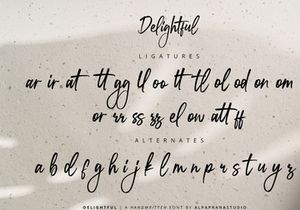 Delightful
LIGATURES
ar ir at tt gg ll oo tt tl ol od on om
or rr ss sz el ow att ff
ALTERNATES
a b d f g h i j k l m n p r s t u y z
DELIGHTFUL | A HANDWRITTEN FONT BY ALPAPRANASTUDIO